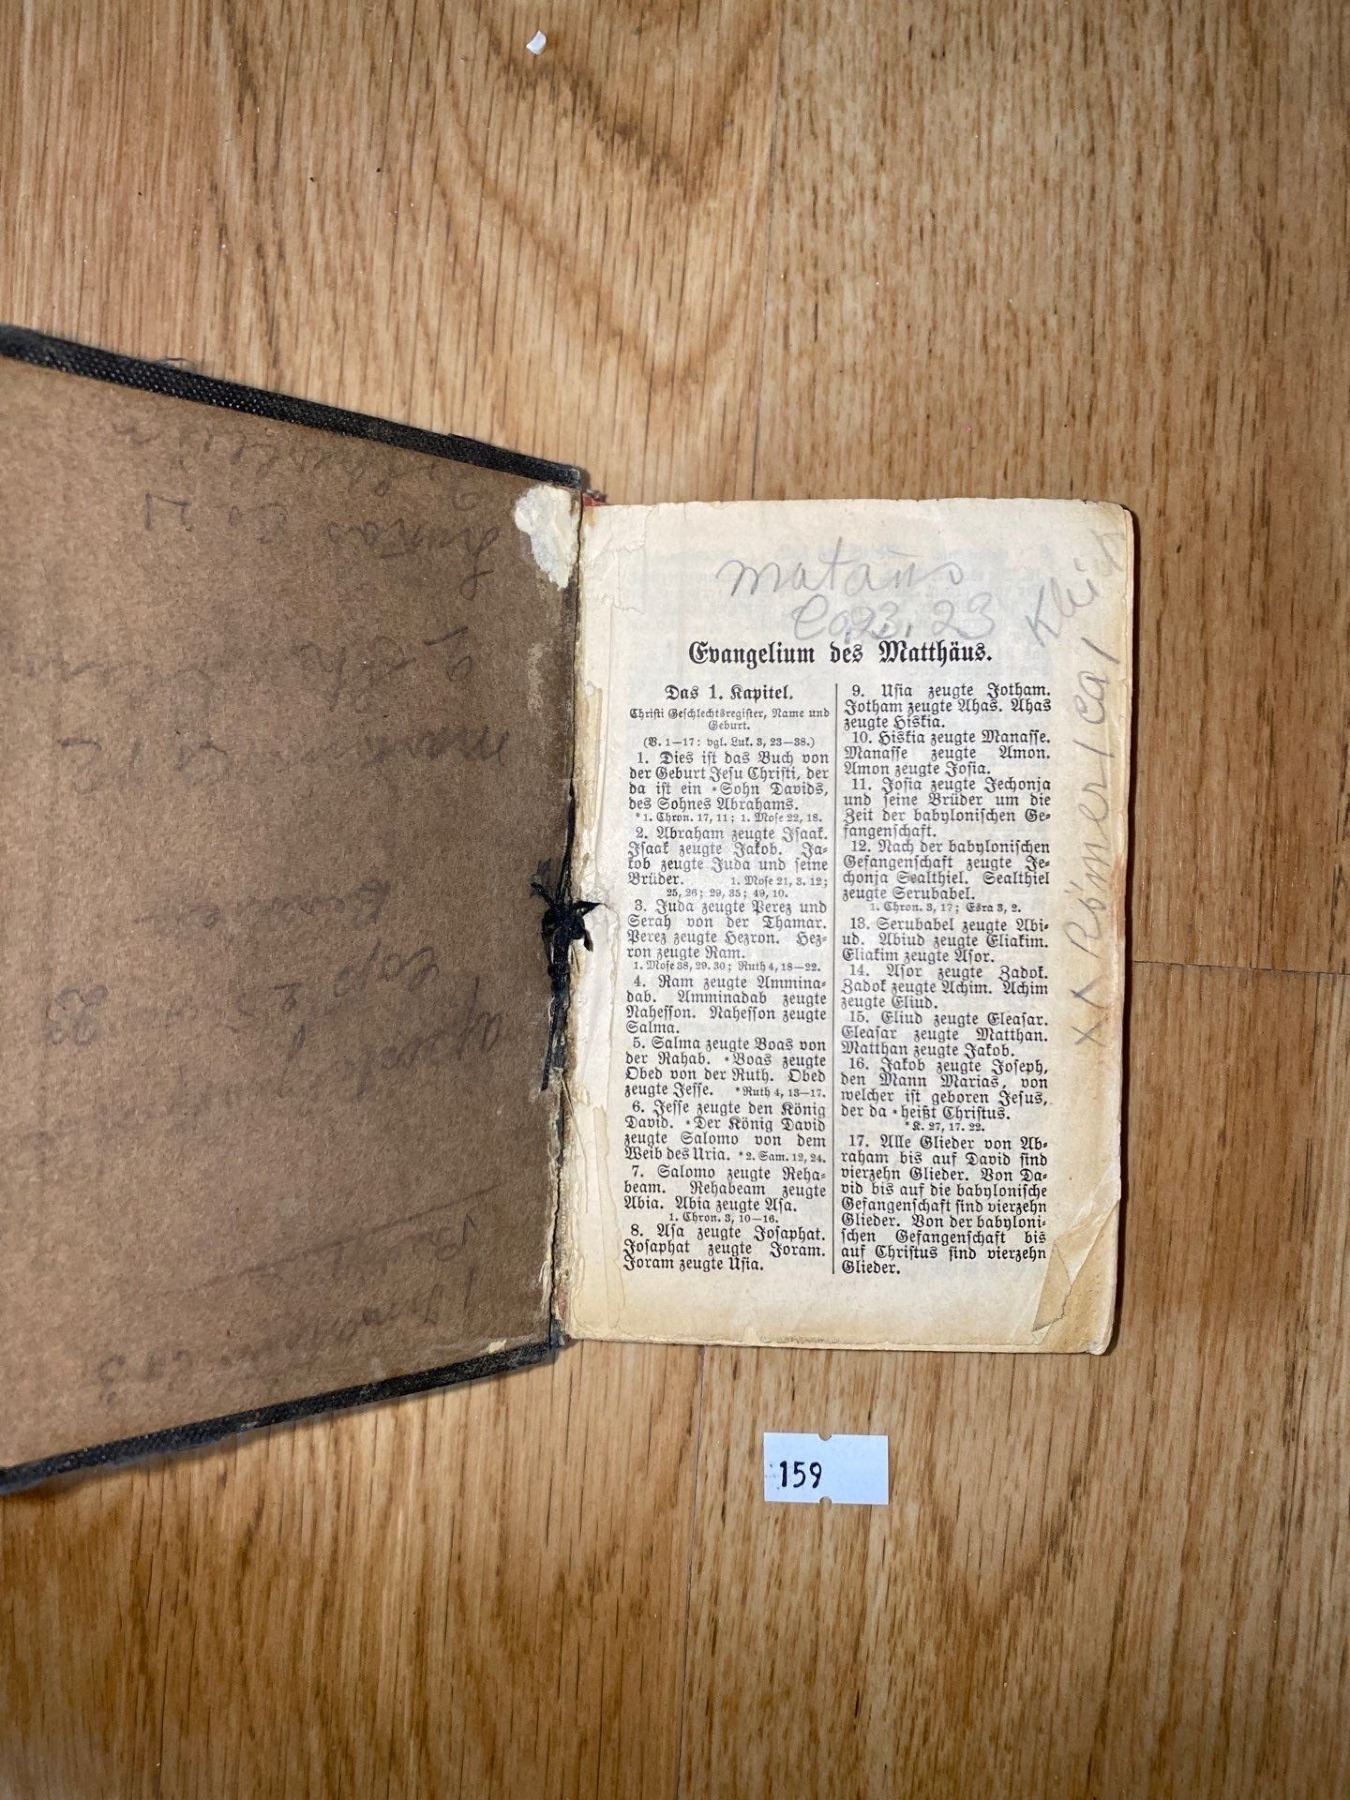 matäus
Cap. 23
Evangelium des Matthäus.
Das 1. Kapitel.
Christi Geschlechtsregister, Name und
Geburt.
(V. 1—17: vgl. Luk. 3, 23—38.)
1. Dies ist das Buch von
der Geburt Jesu Christi, der
da ist ein *Sohn Davids,
des Sohnes Abrahams.
*1. Chron. 17, 11; 1. Mose 22, 18.
2. Abraham zeugte Isaak.
Isaak zeugte Jakob. Ja-
kob zeugte Juda und seine
Brüder. 1. Mose 21, 3. 12;
25, 26; 29, 35; 49, 10.
3. Juda zeugte Perez und
Serah von der Thamar.
Perez zeugte Hezron. Hez-
ron zeugte Ram.
1. Mose 38, 29. 30; Ruth 4, 18—22.
4. Ram zeugte Ammina-
dab. Amminadab zeugte
Nahesson. Nahesson zeugte
Salma.
5. Salma zeugte Boas von
der Rahab. *Boas zeugte
Obed von der Ruth. Obed
zeugte Jesse. *Ruth 4, 13—17.
6. Jesse zeugte den König
David. *Der König David
zeugte Salomo von dem
Weib des Uria. *2. Sam. 12, 24.
7. Salomo zeugte Reha-
beam. Rehabeam zeugte
Abia. Abia zeugte Asa.
1. Chron. 3, 10—16.
8. Asa zeugte Josaphat.
Josaphat zeugte Joram.
Joram zeugte Usia.
9. Usia zeugte Jotham.
Jotham zeugte Ahas. Ahas
zeugte Hiskia.
10. Hiskia zeugte Manasse.
Manasse zeugte Amon.
Amon zeugte Josia.
11. Josia zeugte Jechonja
und seine Brüder um die
Zeit der babylonischen Ge-
fangenschaft.
12. Nach der babylonischen
Gefangenschaft zeugte Je-
chonja Sealthiel. Sealthiel
zeugte Serubabel.
1. Chron. 3, 17; Esra 3, 2.
13. Serubabel zeugte Abi-
ud. Abiud zeugte Eliakim.
Eliakim zeugte Asor.
14. Asor zeugte Zadok.
Zadok zeugte Achim. Achim
zeugte Eliud.
15. Eliud zeugte Eleasar.
Eleasar zeugte Matthan.
Matthan zeugte Jakob.
16. Jakob zeugte Joseph,
den Mann Marias, von
welcher ist geboren Jesus,
der da *heißt Christus.
*K. 27, 17. 22.
17. Alle Glieder von Ab-
raham bis auf David sind
vierzehn Glieder. Von Da-
vid bis auf die babylonische
Gefangenschaft sind vierzehn
Glieder. Von der babyloni-
schen Gefangenschaft bis
auf Christus sind vierzehn
Glieder.
XX Römer 1 Cap 1
159